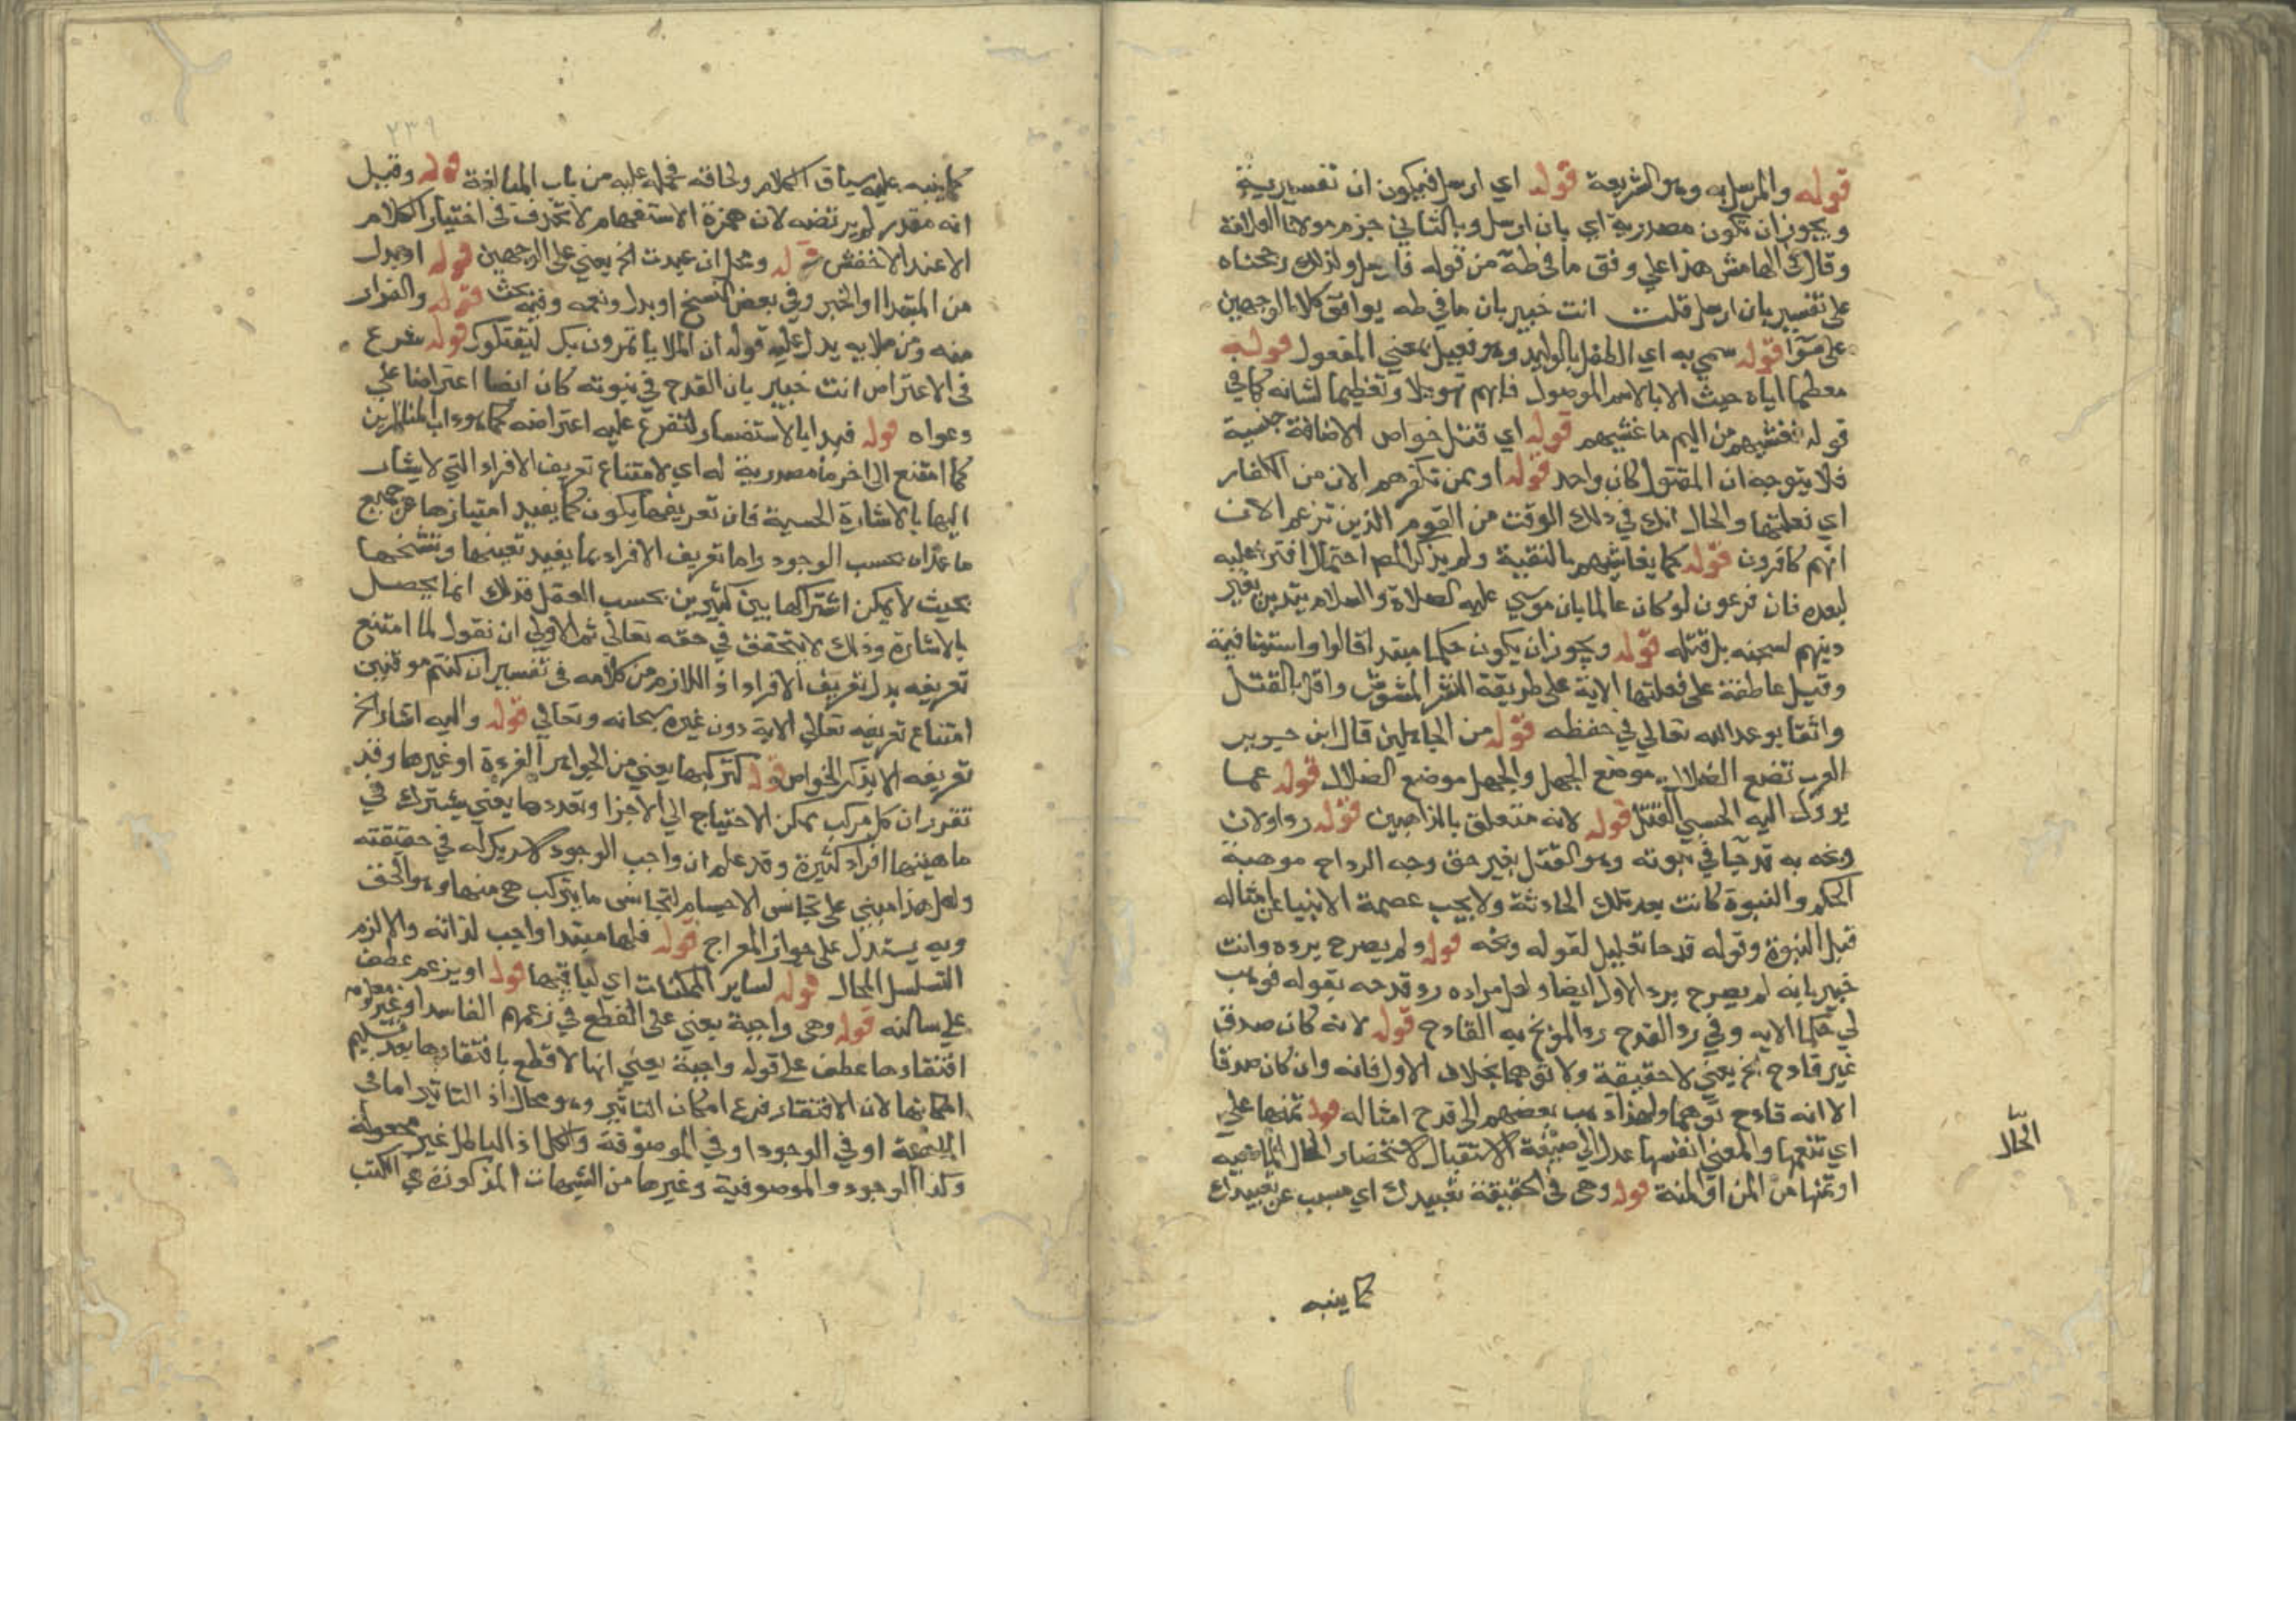 قوله والمرسل به وهو الشريعة قوله اي ارسل فيكون ان تفسيرية
ويجوز ان تكون مصدرية اي بان ارسل وبالثاني جزم مولانا العلامة
وقال في الهامش هذا علي وفق ما في طه من قوله فارسل ولذلك رجحناه
علي تفسير بان ارسل قلت انت خبير بان ما في طه يوافق كلا الوجهين
علي سوآ قوله سمي به اي الطفل بالوليد وهو فعيل بمعني المفعول قوله
معظما اياه حيث الا بالاسم الموصول فابهم تهويلا وتعظيما لشانه كما في
قوله فغشيهم من اليم ما غشيهم قوله اي قتل خواص الاضافة جنسية
فلا يتوجه ان المقتول كان واحد قوله او ممن تكفرهم الان من الكفار
اي فعلتها والحال انك في ذلك الوقت من القوم الذين تزعم الان
انهم كافرون قوله كما يعايشهم بالتقية ولم يذكر المص احتمال افترا عليه
لبعده فان فرعون لو كان عالما بان موسي عليه الصلاة والسلام يتدين بغير
دينهم لسجنه بل قتله قوله ويجوز ان يكون حكما مبتدا قالوا واستينافية
وقيل عاطفة علي فعلتها الاية علي طريقة النشر المشوش واقر بالقتل
واثقا بوعد الله تعالي في حفظه قوله من الجاهلين قال ابن جوير
العرب تضع الضلال موضع الجهل والجهل موضع الضلال قوله عما
يوول اليه الحسبي القتل قوله لانه متعلق بالذاهبين قوله رد اولا
وبخه به قدحا في نبوته وهو القتل بغير حق وجه الرد اح موهبة
الحكم والنبوة كانت بعد تلك الحادثة ولا يجب عصمة الانبيا عن امثاله
قبل النبوة وقوله قدحا تعليل لقوله وبخه قوله ولم يصرح برده وانت
خبير بانه لم يصرح برد الاول ايضا ولعل مراده رد قدحه بقوله فوهب
لي حكما الايه وفي رد القدح رد الموبخ به القادح قوله لانه كان صدقا
غير قادح الخ يعني لا حقيقة ولا توهما بخلاف الاول فانه وان كان صدقا
الا انه قادح توهما ولهذا ذهب بعضهم الي قدح امثاله قوله تمنها علي
اي تنعمها والمعني انفسها عدل الي صيغة الاستقبال لاستحضار الحال الماضيه
او تمنها من المن او المنة قوله وهي في الحقيقة تعبيدك اي مسبب عن تعبيدك
الحال
كما ينبه
٢٣٩
كما ينبه عليه سياق الكلام ولحاقه فحمله عليه من باب المبالغة قوله وقيل
انه مقدر لم يرتضه لان همزة الاستفهام لا تحذف في اختيار الكلام
الا عند الاخفش قوله ومحل ان عبدت الخ يعني علي الوجهين قوله او بدل
من المبتدا او الخبر وفي بعض النسخ او بدل ونعمه وفيه بحث قوله والفرار
منه ومن ملايه يدل عليه قوله ان الملا يأتمرون بك ليقتلوك قوله شرع
في الاعتراض انت خبير بان القدح في نبوته كان ايضا اعتراضا علي
دعواه قوله فبدا بالاستفسار لتفرع عليه اعتراضه كما هو داب المناظرين
كما امتنع الي اخره ما مصدرية له اي لامتناع تعريف الافراد التي لا يشار
اليها بالاشارة الحسية فان تعريفها يكون كما يفيد امتيازها عن جميع
ما عداه بحسب الوجود واما تعريف الافراد بما يفيد تعينها وتشخصها
بحيث لا يمكن اشتراكها بين كثيرين بحسب العقل فذلك انما يحصل
بالاشارة وذلك لا يتحقق في حقه تعالي ثم الاولي ان نقول لما امتنع
تعريفه بدل تعريف الافراد اذ اللازم من كلامه في تفسير ان كنتم موقنين
امتناع تعريفه تعالي الاية دون غيره سبحانه وتعالي قوله واليه اشار الخ
تعريفه الا بذكر الخواص قوله كتركبها يعني من الجواهر الفردة او غيرها وقد
تقرر ان كل مركب ممكن لاحتياج الي الاجزا وتعددها يعني يشترك في
ماهيتها افراد كثيرة وقد علم ان واجب الوجود لا شريك له في حقيقته
ولعل هذا مبني علي تجانس الاجسام لتجانس ما يتركب هي منها وهو الحق
وبه يستدل علي جواز المعراج قوله فلها مبتدا واجب لذاته والا لزم
التسلسل المحال قوله لساير الممكنات اي لباقيها قوله او يزعم عطف
علي سالته قوله وهي واجبة يعني علي القطع في زعمهم الفاسد او غير معلوم
افتقارها عطف علي قوله واجبة يعني انها لا قطع بافتقارها بعد تسليم
امكانها لان الافتقار فرع امكان التاثير وهو محال اذ التاثير اما في
الماهية او في الوجود او في الموصوفة والكل اذ الباطل غير مجعولة
وكذا الوجود والموصوفية وغيرها من الشبهات المذكورة في الكتب